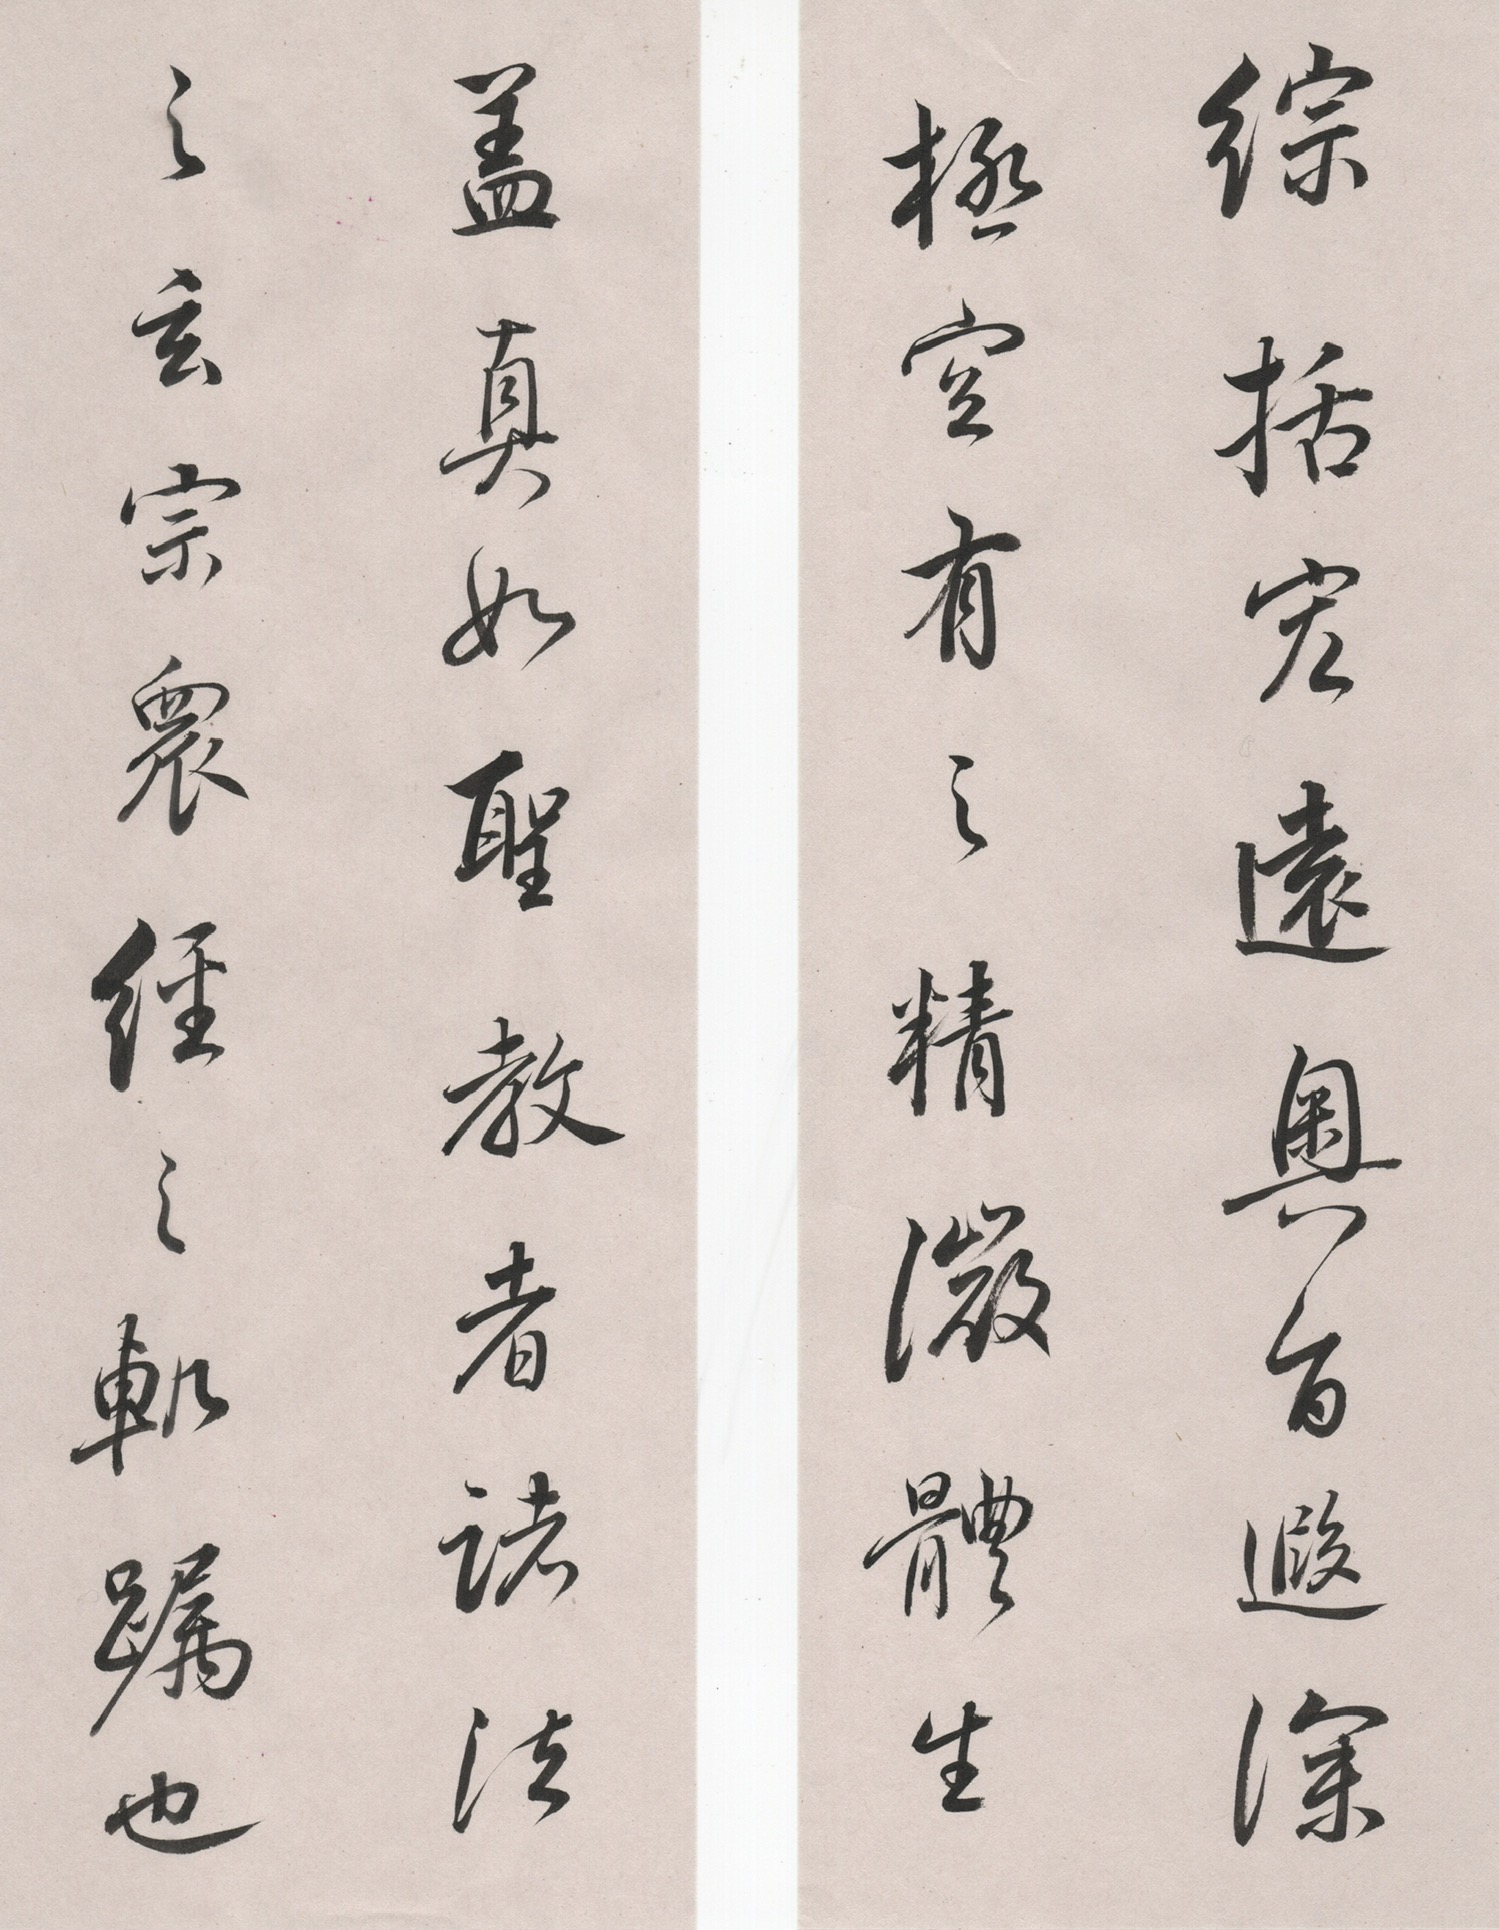 盖真如聖教者諸法
之玄宗衆經之軌躅也
綜括宏遠奧旨遐深
極空有之精微體生